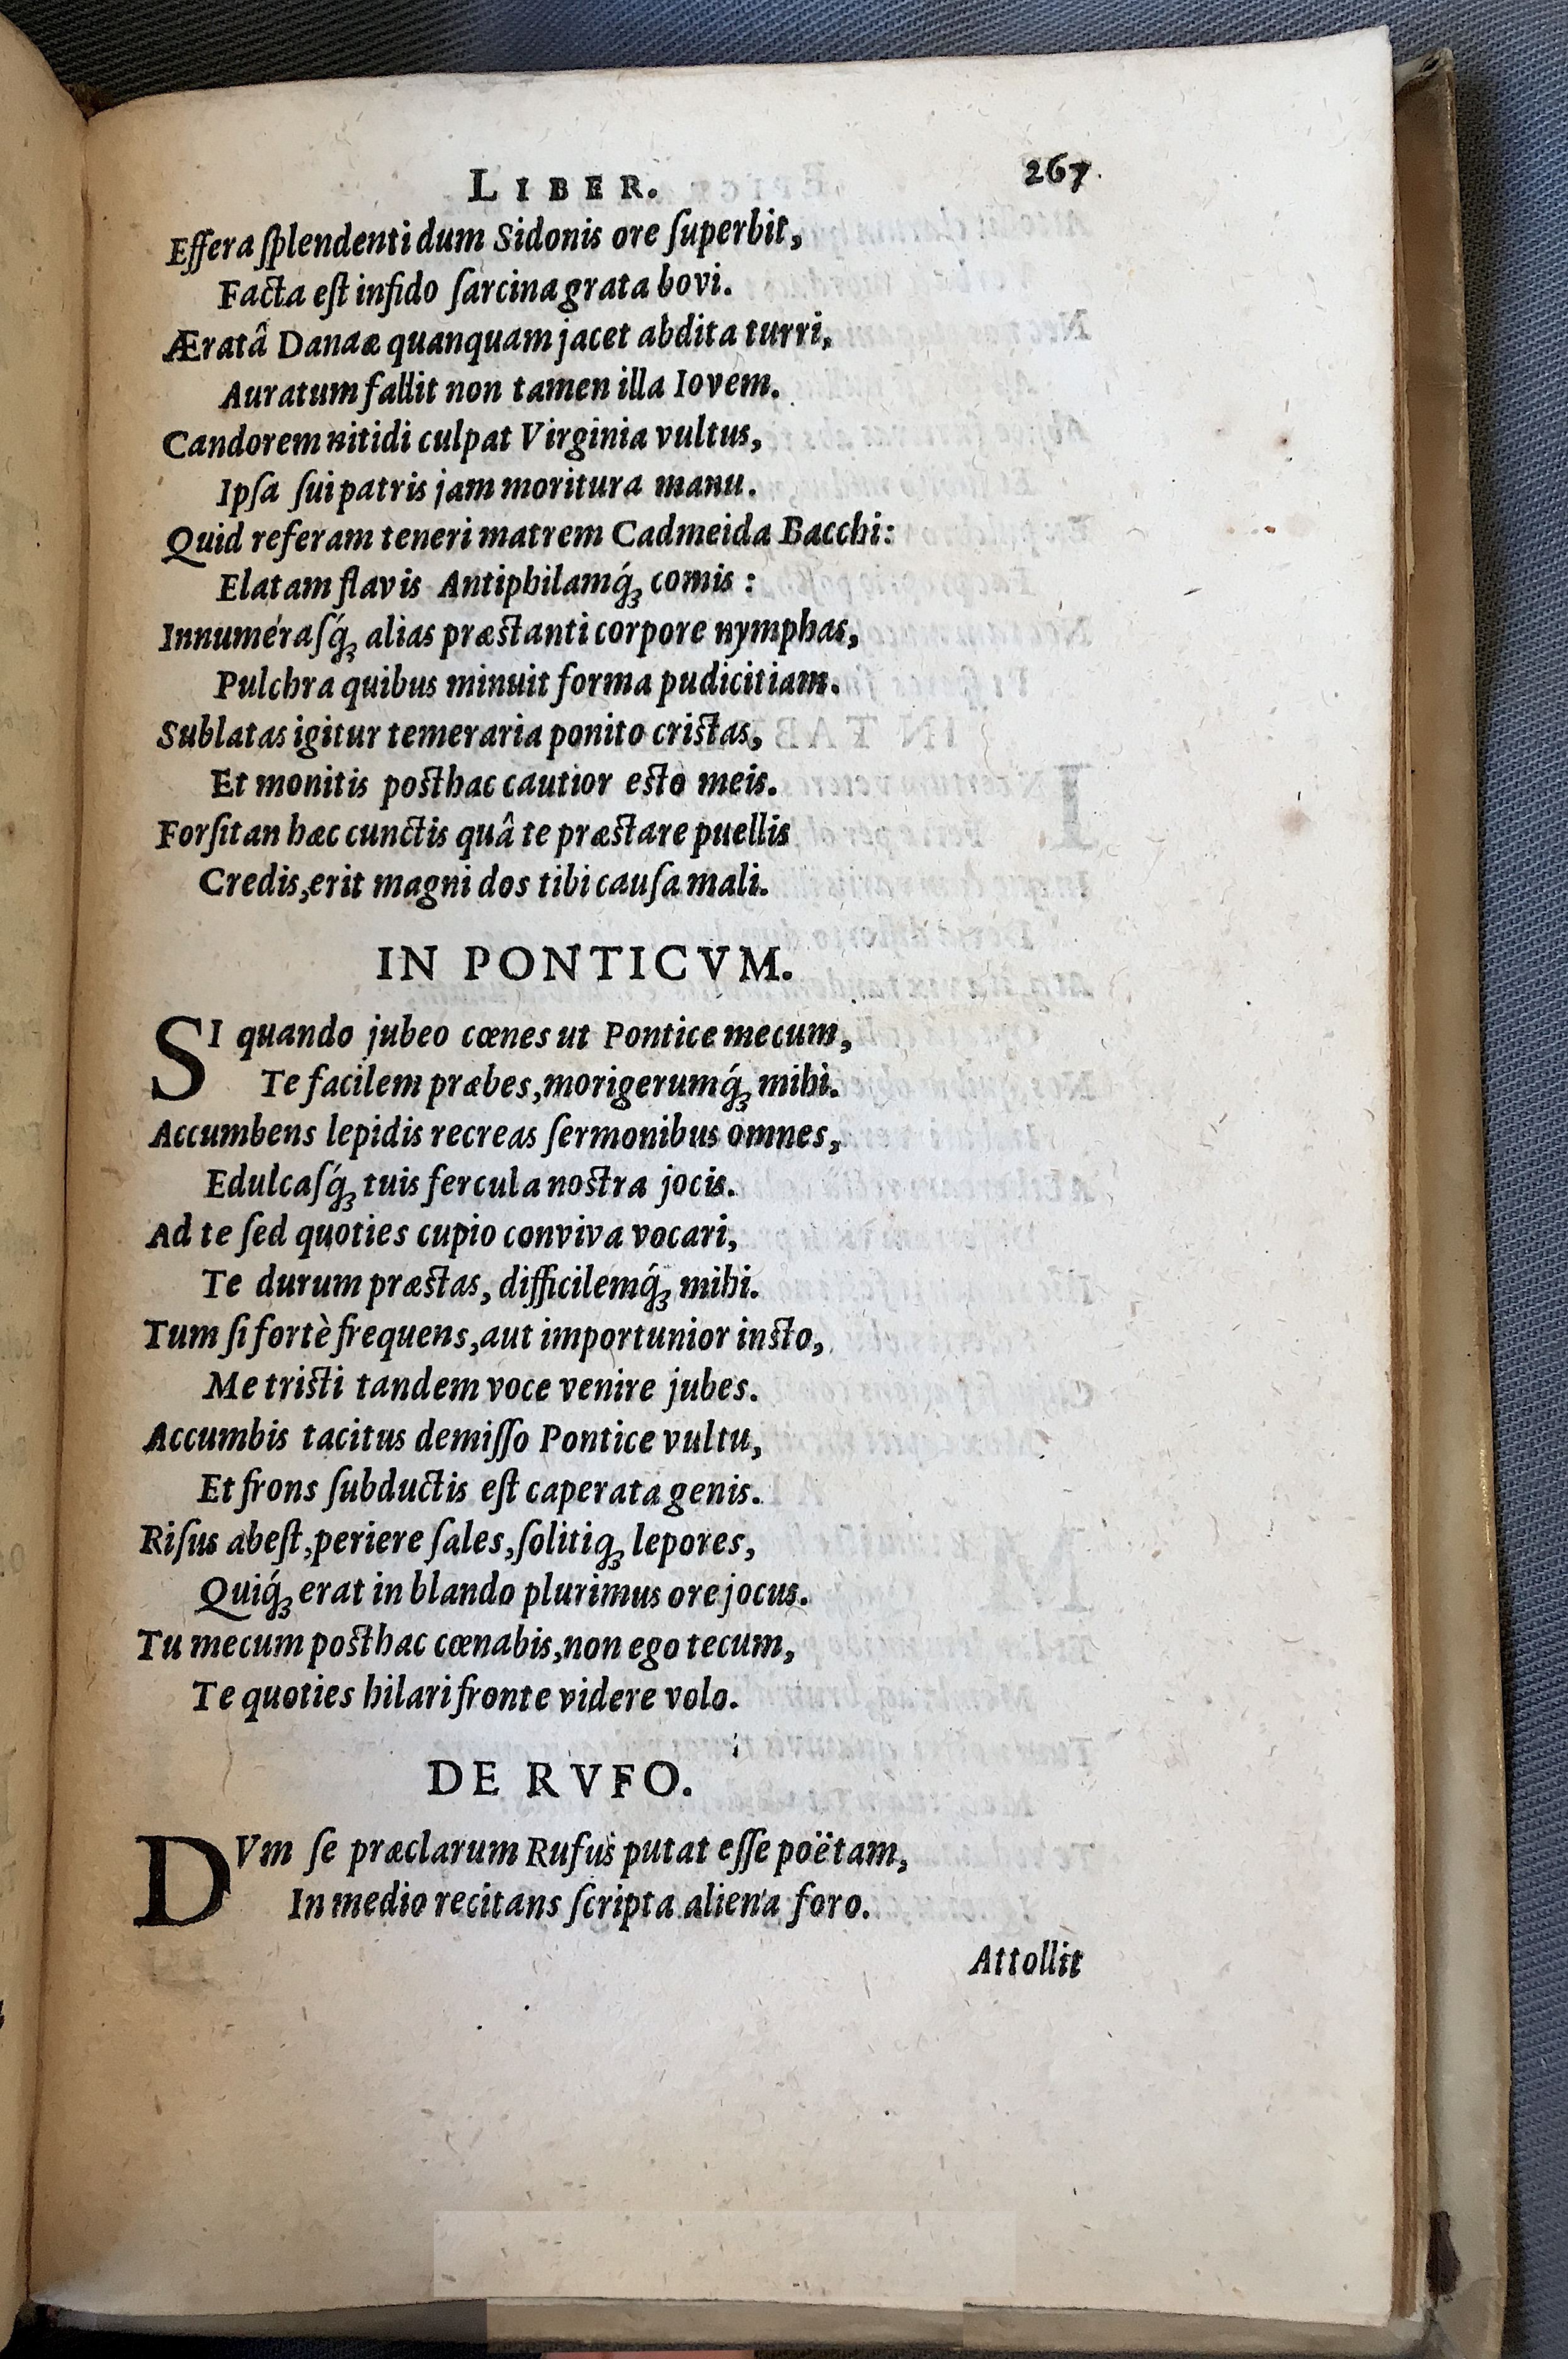 LIBER. 267
Effera ſplendenti dum Sidonis ore ſuperbit,
Facta eſt infido ſarcina grata bovi.
Æratâ Danaæ quanquam jacet abdita turri,
Auratum fallit non tamen illa Iovem.
Candorem nitidi culpat Virginia vultus,
Ipſa ſui patris jam moritura manu.
Quid referam teneri matrem Cadmeida Bacchi:
Elatam flavis Antiphilamq́ꝫ comis :
Innumeraſq́ꝫ alias præſtanti corpore nymphas,
Pulchra quibus minuit forma pudicitiam.
Sublatas igitur temeraria ponito criſtas,
Et monitis poſthac cautior eſto meis.
Forſitan hæc cunctis quâ te præſtare puellis
Credis, erit magni dos tibi cauſa mali.
IN PONTICVM.
SI quando jubeo cœnes ut Pontice mecum,
Te facilem præbes, morigerumq́ꝫ mihi.
Accumbens lepidis recreas ſermonibus omnes,
Edulcaſq́ꝫ tuis fercula noſtra jocis.
Ad te ſed quoties cupio conviva vocari,
Te durum præſtas, difficilemq́ꝫ mihi.
Tum ſi fortè frequens, aut importunior inſto,
Me triſti tandem voce venire jubes.
Accumbis tacitus demiſſo Pontice vultu,
Et frons ſubductis eſt caperata genis.
Riſus abeſt, periere ſales, ſolitiqꝫ lepores,
Quiq́ꝫ erat in blando plurimus ore jocus.
Tu mecum poſthac cœnabis, non ego tecum,
Te quoties hilari fronte videre volo.
DE RVFO.
DVm ſe præclarum Rufus putat eſſe poëtam,
In medio recitans ſcripta aliena foro.
Attollit